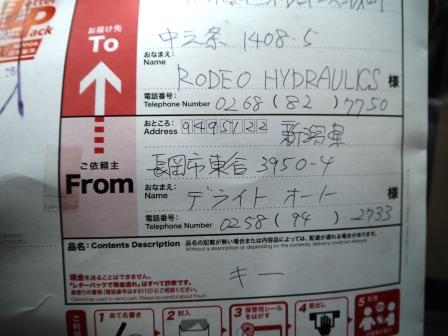 お届け先
To
中之条 1408-5
おなまえ:
Name
RODEO HYDRAULICS 様
電話番号:
Telephone Number 0268 (82) 7750
おところ:
Address 9495122 新潟県
ご依頼主
From
長岡市東谷 3950-4
おなまえ:
Name
デライト オート 様
電話番号:
Telephone Number 0258 (94) 2733
品名: Contents Description 品名の記載が無い場合または内容品によっては、配達が遅れる場合があります。
Without a description or depending on the contents, delivery could be delayed.
キー
現金を送ることはできません。
「レターパックで現金送れ」はすべて詐欺です。
Cannot be used to send cash. Please be careful about fraud.
1 あて名書き
2 封入
3 保管用シールをはがす
4 差出し
5 配達